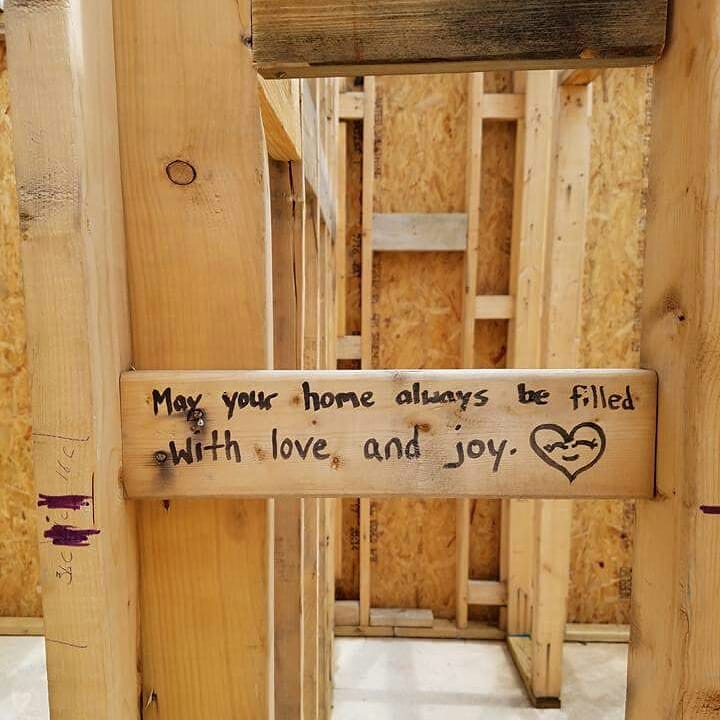 May your home always be filled
with love and joy.